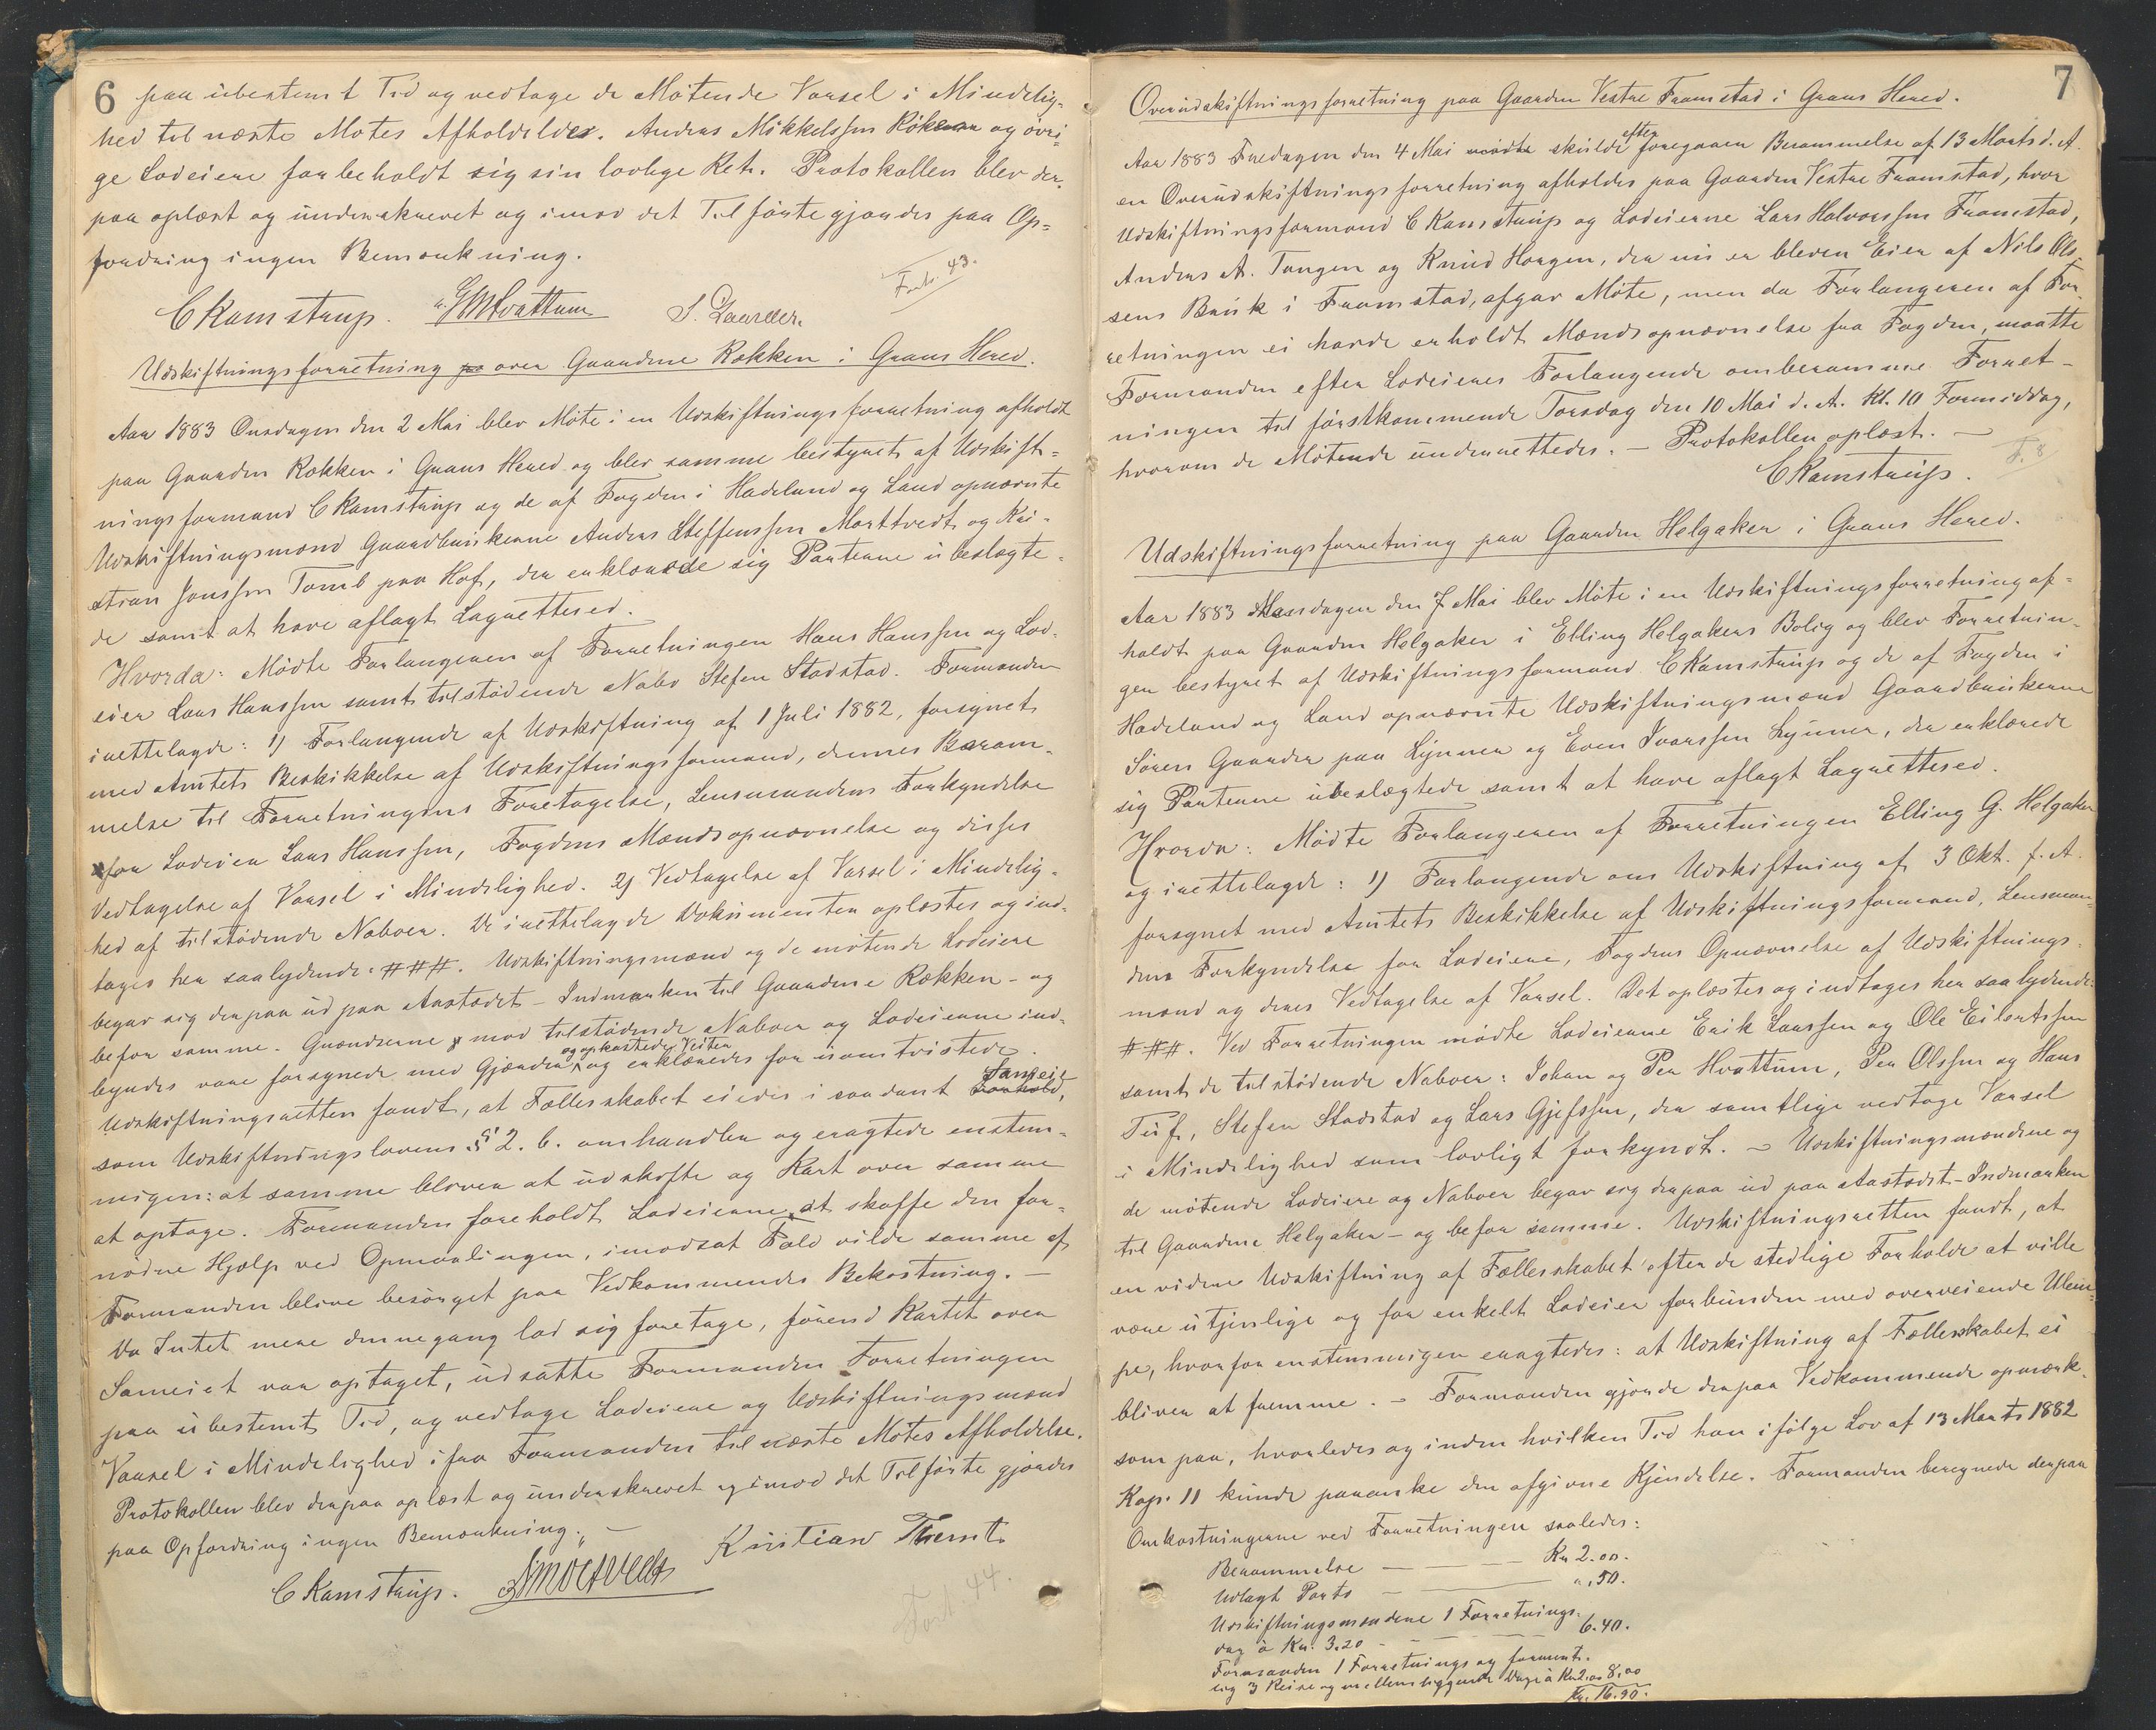 6
paa ubestemt Tid og vedtoge de Mötende Varsel i Mindelig-
hed til næste Mötes Afholdelse. Andreas Mikkelssen og övri-
ge Lodeiere forbeholdt sig sin lovlige Ret. Protokollen blev der-
paa oplæst og underskrevet og imod det Tilförte gjordes paa Op-
fordring ingen Bemærkning.
Forts. 43.
C Kamstrup. Hvattum S. Gaarder.
Udskiftningsforretning pa over Gaardene Rækken i Grans Hered.
Aar 1883 Onsdagen den 2 Mai blev Möte i en Udskiftningsforretning afholdt
paa Gaarden Rækken i Grans Hered og blev samme bestyret af Udskift-
ningsformand C Kamstrup og de af Fogden i Hadeland og Land opnævnte
Udskiftningsmænd Gaardbrukerne Andreas Steffenssen Morttvedt og Kri-
stian Jonssen Tömt paa Hof, der erklærede sig Parterne ubeslægte-
de samt at have aflagt Lagrettesed.
Hvorda: Mödte Forlangeren af Forretningen Hans Hanssen og Lod-
eier Lars Hanssen samt tilstödende Nabo Stefen Stadstad. Formanden
irettelagde: 1) Forlangende af Udskiftning af 1 Juli 1882, forsynet
med Amtets Beskikkelse af Udskiftningsformand, dennes Beram-
melse til Forretningens Foretagelse, Lensmandens Forkyndelse
for Lodeier Lars Hanssen, Fogdens Mændsopnævnelse og disses
Vedtagelse af Varsel i Mindelighed. 2) Vedtagelse af Varsel i Mindelig-
hed af tilstödende Naboer. De irettelagde Dokumenter oplæstes og ind-
tages her saalydende: ###. Udskiftningsmænd og de mötende Lodeiere
begav sig derpaa ud paa Aastedet - Indmarken til Gaardene Rækken - og
befor samme. Grændserne mod tilstödende Naboer og Lodeierne ind-
byrdes vare forsynede med Gjærder og opkastede Veiter og erklæredes for uomtvistede.
Udskiftningsretten fandt, at Fællesskabet eiedes i saadant Forhold, Sameie
som Udskiftningslovens § 2. b. omhandler og eragtede enstem-
migen: at samme bliver at udskifte og Kart over samme
at optage. Formanden foreholdt Lodeierne at skaffe den for-
nödne Hjælp ved Opmaalingen, imodsat Fald vilde samme af
Formanden blive besörget paa Vedkommendes Bekostning. —
Da Intet mere dennegang lod sig foretage, förend Kartet over
Sameiet var optaget, udsatte Formanden Forretningen
paa ubestemt Tid, og vedtoge Lodeiere og Udskiftningsmænd
Varsel i Mindelighed ifra Formanden til næste Mötes Afholdelse.
Protokollen blev derpaa oplæst og underskrevet og imod det Tilförte gjordes
paa Opfordring ingen Bemærkning. —
C Kamstrup. Kristian Thömt
Fort. 44.
7
Overudskiftningsforretning paa Gaarden Vestre Framstad i Grans Hered.
Aar 1883 Fredagen den 4 Mai mödte skulde efter foregaaen Berammelse af 13 Marts d. A.
en Overudskiftningsforretning afholdes paa Gaarden Vestre Framstad, hvor
Udskiftningsformand C Kamstrup og Lodeierne Lars Halvorssen Framstad,
Andreas A. Tangen og Knud Horgen, der nu er bleven Eier af Nils Ols-
sens Bruk i Framstad, afgav Möte, men da Forlangeren af For-
retningen ei havde erholdt Mændsopnævnelse fra Fogden, maatte
Formanden efter Lodeieres Forlangende omberamme Forret-
ningen til förstkommende Torsdag den 10 Mai d. A. Kl. 10 Formiddag,
hvorom de Mötende underrettedes. — Protokollen oplæst. —
C Kamstrup.
F. 8
Udskiftningsforretning paa Gaarden Helgaker i Grans Hered.
Aar 1883 Mandagen den 7 Mai blev Möte i en Udskiftningsforretning af-
holdt paa Gaarden Helgaker i Elling Helgakers Bolig og blev Forretnin-
gen bestyret af Udskiftningsformand C Kamstrup og de af Fogden i
Hadeland og Land opnævnte Udskiftningsmænd Gaardbrukerne
Sören Gaarder paa Lynner og Even Ivarssen Lynner, der erklærede
sig Parterne ubeslægtede samt at have aflagt Lagrettesed.
Hvorda: Mödte Forlangeren af Forretningen Elling G. Helgaker
og irettelagde: 1) Forlangende om Udskiftning af 3 Okt. f. A.
forsynet med Amtets Beskikkelse af Udskiftningsformand, Lensman-
dens Forkyndelse for Lodeiere, Fogdens Opnævnelse af Udskiftnings-
mænd og deres Vedtagelse af Varsel. Det oplæstes og indtages her saalydende:
###. Ved Forretningen mödte Lodeierne Erik Larssen og Ole Eilertssen
samt de tilstödende Naboer: Johan og Per Hvattum, Per Olssen og Hans
Tuf, Stefen Stadstad og Lars Gjefssen, der samtlige vedtoge Varsel
i Mindelighed som lovligt forkyndt. — Udskiftningsmændene og
de mötende Lodeiere og Naboer begav sig derpaa ud paa Aastedet - Indmarken
til Gaardene Helgaker - og befor samme. Udskiftningsretten fandt, at
en videre Udskiftning af Fællesskabet efter de stedlige Forholde at ville
være utjenlige og for enkelt Lodeier forbunden med overveiende Ulem-
pe, hvorfor enstemmigen eragtedes: at Udskiftning af Fællesskabet ei
bliver at fremme. — Formanden gjorde derpaa Vedkommende opmærk-
som paa, hvorledes og inden hvilken Tid han ifölge Lov af 13 Marts 1882
Kap. 11 kunde paaanke den afgivne Kjendelse. Formanden beregnede derpaa
Omkostningerne ved Forretningen saaledes:
Berammelse — — Kr 2.00.
Udlagt Porto — — „ ,50.
Udskiftningsmændene 1 Forretnings-
dag à Kr. 3.20 — — 6.40.
Formanden 1 Forretnings og forment-
lig 3 Reise og mellemliggende Dage à Kr 2.00 8,00
Kr. 16.90.